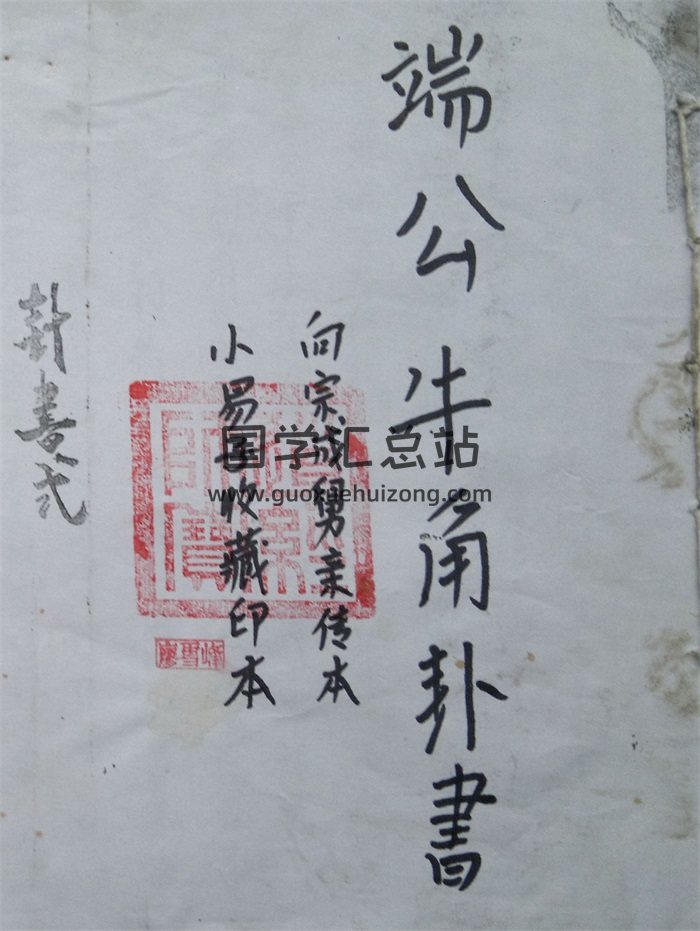 端公牛角卦書
向宗成舅亲传本
小易 收藏印本
卦書式
国学汇总站
www.guoxuehuizong.com
廖雪峰